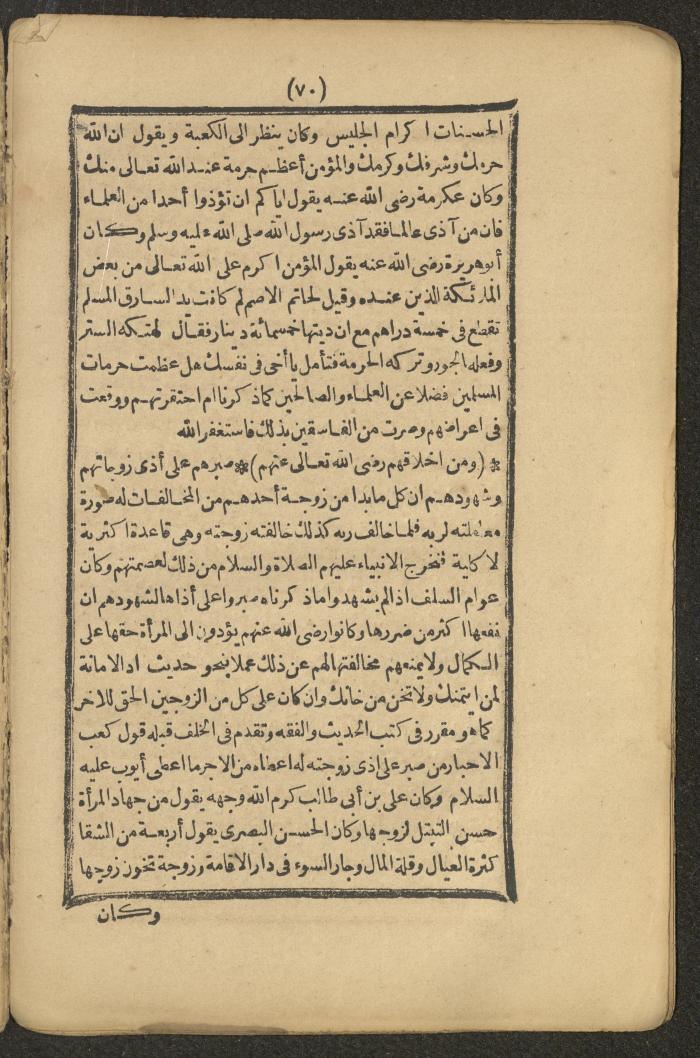 (٧٠)
الحسنات اكرام الجليس وكان ينظر الى الكعبة ويقول ان الله
حرمك وشرفك وكرمك والمؤمن أعظم حرمة عند الله تعالى منك
وكان عكرمة رضى الله عنه يقول اياكم ان تؤذوا أحدا من العلماء
فان من آذى عالما فقد آذى رسول الله صلى الله عليه وسلم وكان
أبو هريرة رضى الله عنه يقول المؤمن اكرم على الله تعالى من بعض
الملائكة الذين عنده وقيل لحاتم الاصم لم كانت يد السارق المسلم
تقطع فى خمسة دراهم مع ان ديتها خمسمائة دينار فقال لهتكه الستر
وفعله الجور وتركه الحرمة فتأمل يا أخى فى نفسك هل عظمت حرمات
المسلمين فضلا عن العلماء والصالحين كما ذكرنا ام احتقرتهم ووقعت
فى اعراضهم وصرت من الفاسقين بذلك فاستغفر الله
* (ومن اخلاقهم رضى الله تعالى عنهم) * صبرهم على أذى زوجاتهم
وشهودهم ان كل ما بدا من زوجة أحدهم من المخالفات له صورة
معاملته لربه فلما خالف ربه كذلك خالفته زوجته وهى قاعدة اكثرية
لا كلية فتخرج الانبياء عليهم الصلاة والسلام من ذلك لعصمتهم وكان
عوام السلف اذا لم يشهدوا ماذكرناه صبروا على أذاها لشهودهم ان
نفعها اكثر من ضررها وكانوا رضى الله عنهم يؤدون الى المرأة حقها على
الكمال ولا يمنعهم مخالفتها لهم عن ذلك عملا بنحو حديث اد الامانة
لمن ائتمنك ولا تخن من خانك وان كان على كل من الزوجين الحق للآخر
كما هو مقرر فى كتب الحديث والفقه وتقدم فى الخلف قبله قول كعب
الاحبار من صبر على اذى زوجته له اعطاه من الاجر ما اعطى أيوب عليه
السلام وكان على بن أبى طالب كرم الله وجهه يقول من جهاد المرأة
حسن التبتل لزوجها وكان الحسن البصرى يقول أربعة من الشقا
كثرة العيال وقلة المال وجار السوء فى دار الاقامة وزوجة تخون زوجها
وكان